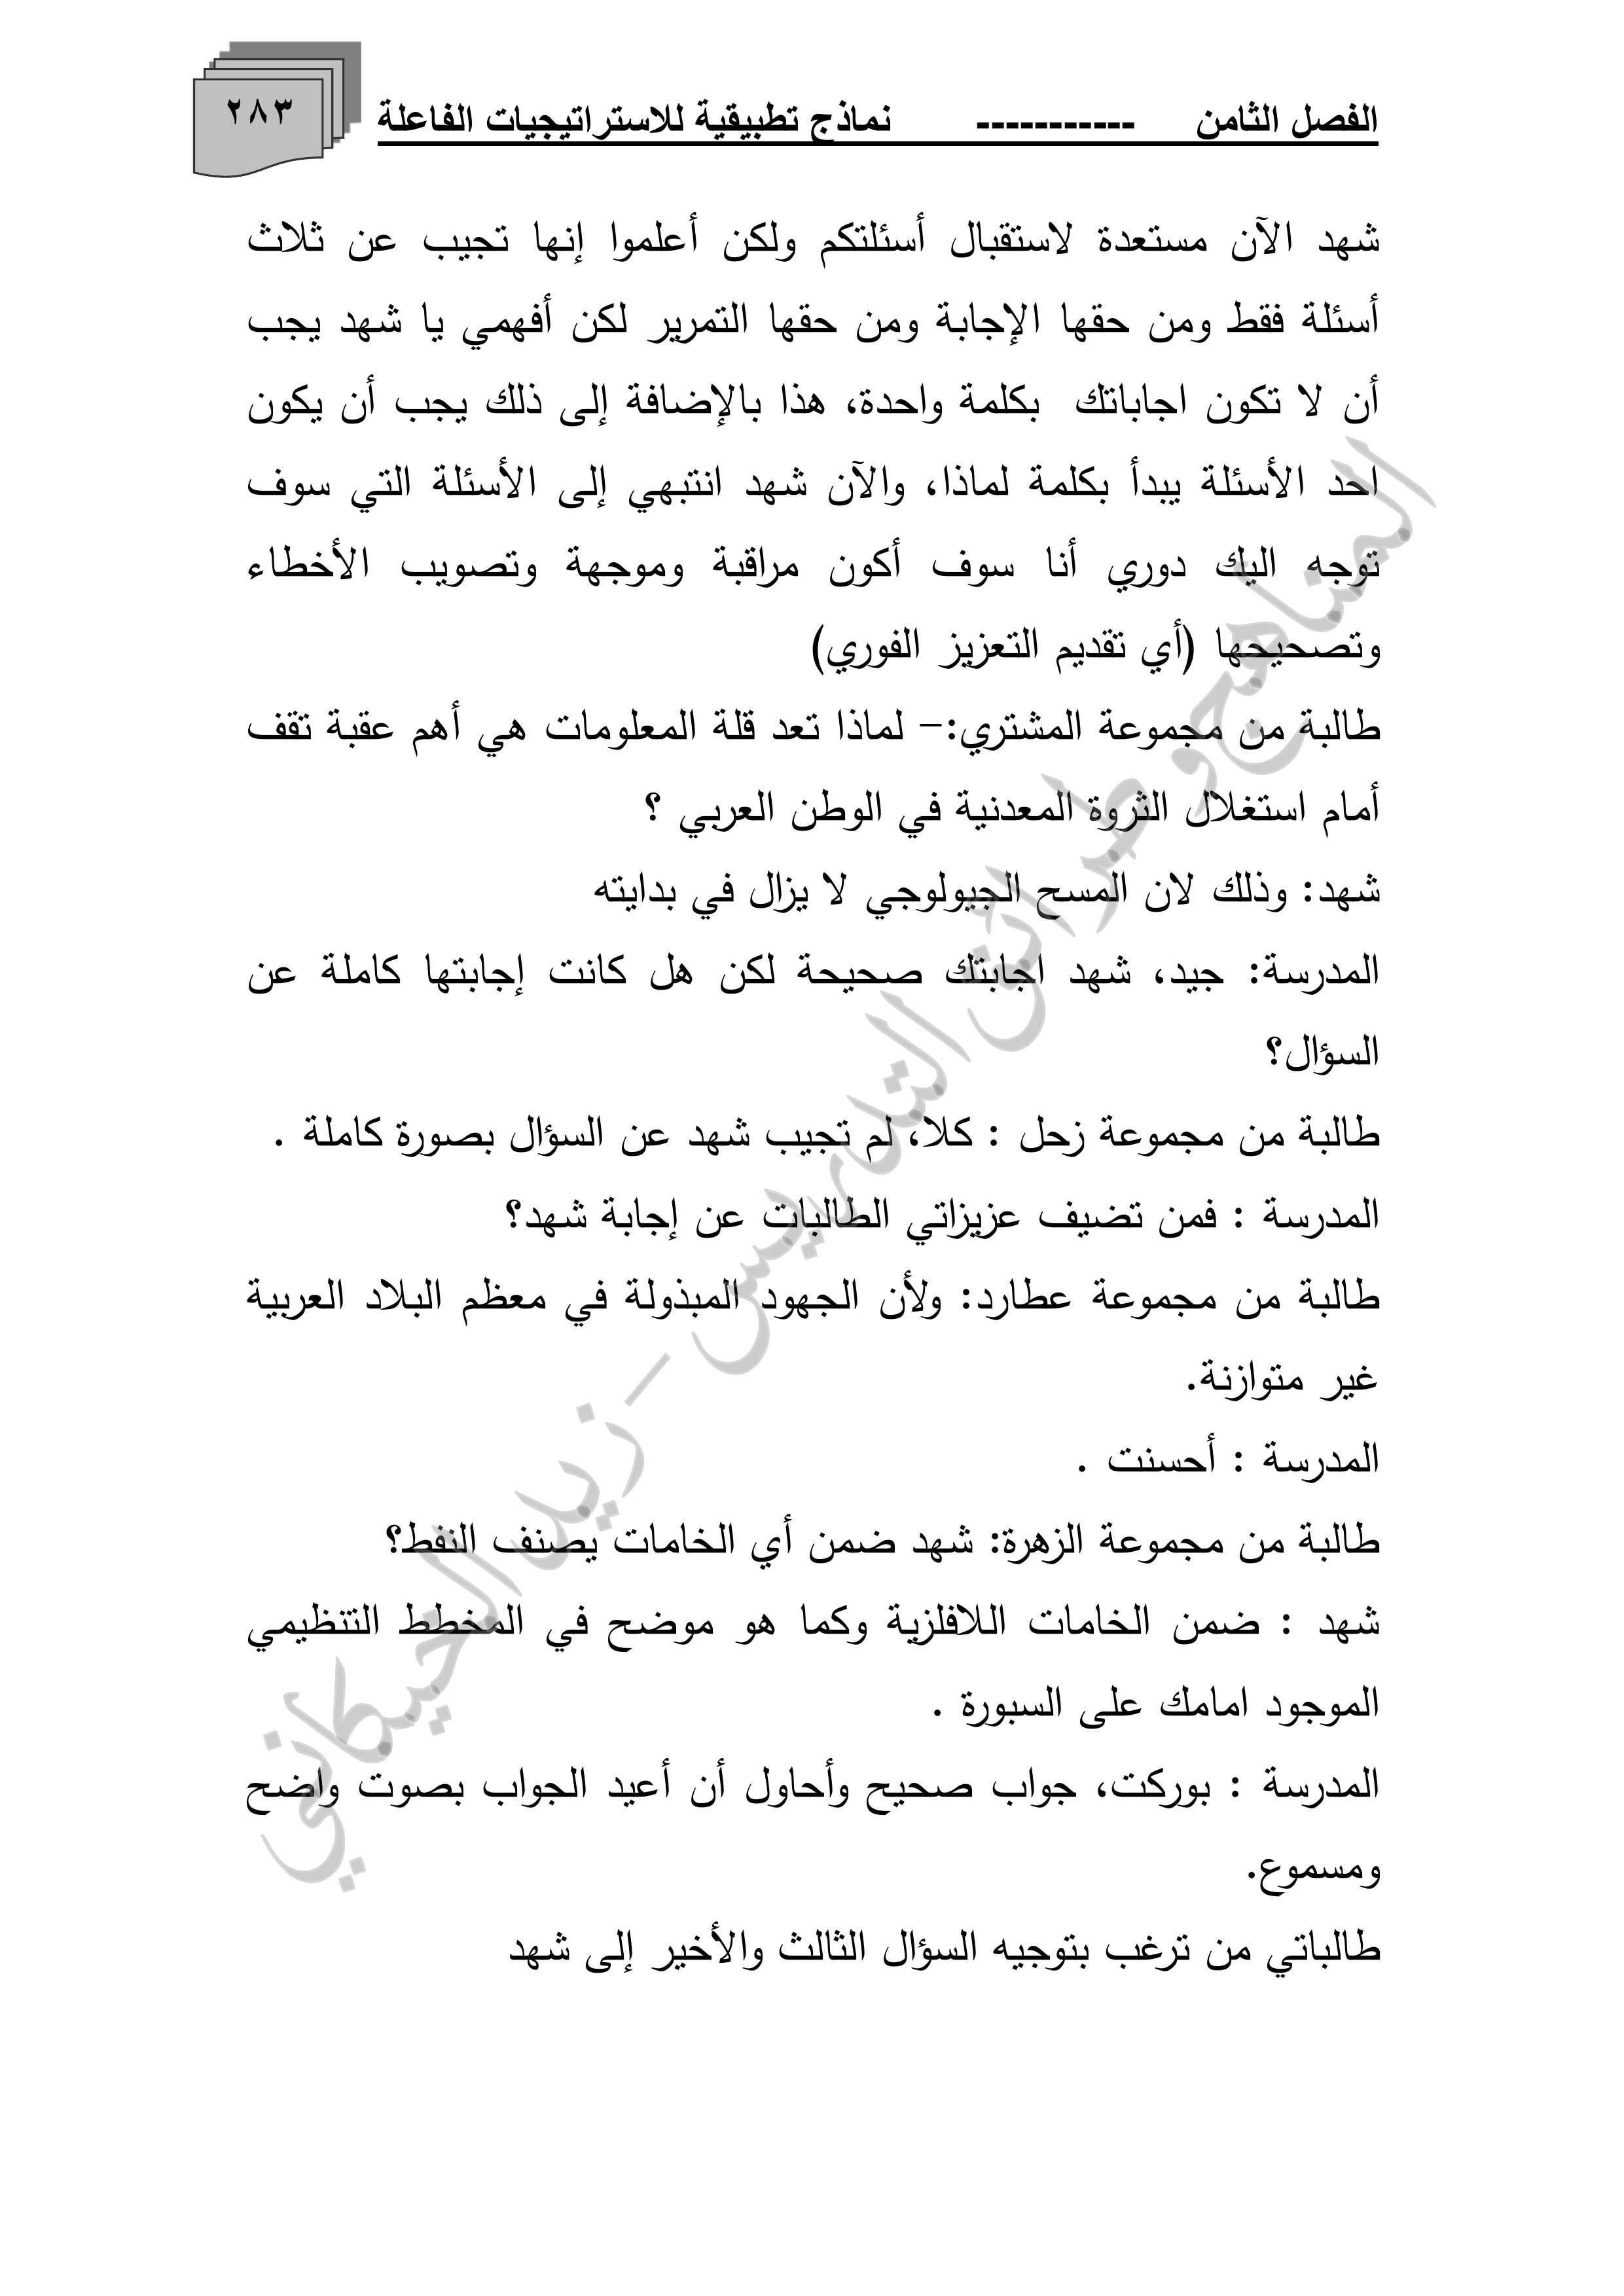 الفصل الثامن ----------- نماذج تطبيقية للاستراتيجيات الفاعلة
٢٨٣
شهد الآن مستعدة لاستقبال أسئلتكم ولكن أعلموا إنها تجيب عن ثلاث
أسئلة فقط ومن حقها الإجابة ومن حقها التمرير لكن أفهمي يا شهد يجب
أن لا تكون اجاباتك بكلمة واحدة، هذا بالإضافة إلى ذلك يجب أن يكون
احد الأسئلة يبدأ بكلمة لماذا، والآن شهد انتبهي إلى الأسئلة التي سوف
توجه اليك دوري أنا سوف أكون مراقبة وموجهة وتصويب الأخطاء
وتصحيحها (أي تقديم التعزيز الفوري)
طالبة من مجموعة المشتري:– لماذا تعد قلة المعلومات هي أهم عقبة تقف
أمام استغلال الثروة المعدنية في الوطن العربي ؟
شهد: وذلك لان المسح الجيولوجي لا يزال في بدايته
المدرسة: جيد، شهد اجابتك صحيحة لكن هل كانت إجابتها كاملة عن
السؤال؟
طالبة من مجموعة زحل : كلا، لم تجيب شهد عن السؤال بصورة كاملة .
المدرسة : فمن تضيف عزيزاتي الطالبات عن إجابة شهد؟
طالبة من مجموعة عطارد: ولأن الجهود المبذولة في معظم البلاد العربية
غير متوازنة.
المدرسة : أحسنت .
طالبة من مجموعة الزهرة: شهد ضمن أي الخامات يصنف النفط؟
شهد : ضمن الخامات اللافلزية وكما هو موضح في المخطط التنظيمي
الموجود امامك على السبورة .
المدرسة : بوركت، جواب صحيح وأحاول أن أعيد الجواب بصوت واضح
ومسموع.
طالباتي من ترغب بتوجيه السؤال الثالث والأخير إلى شهد
المناهج وطرائق التدريس – زيد الخيكاني